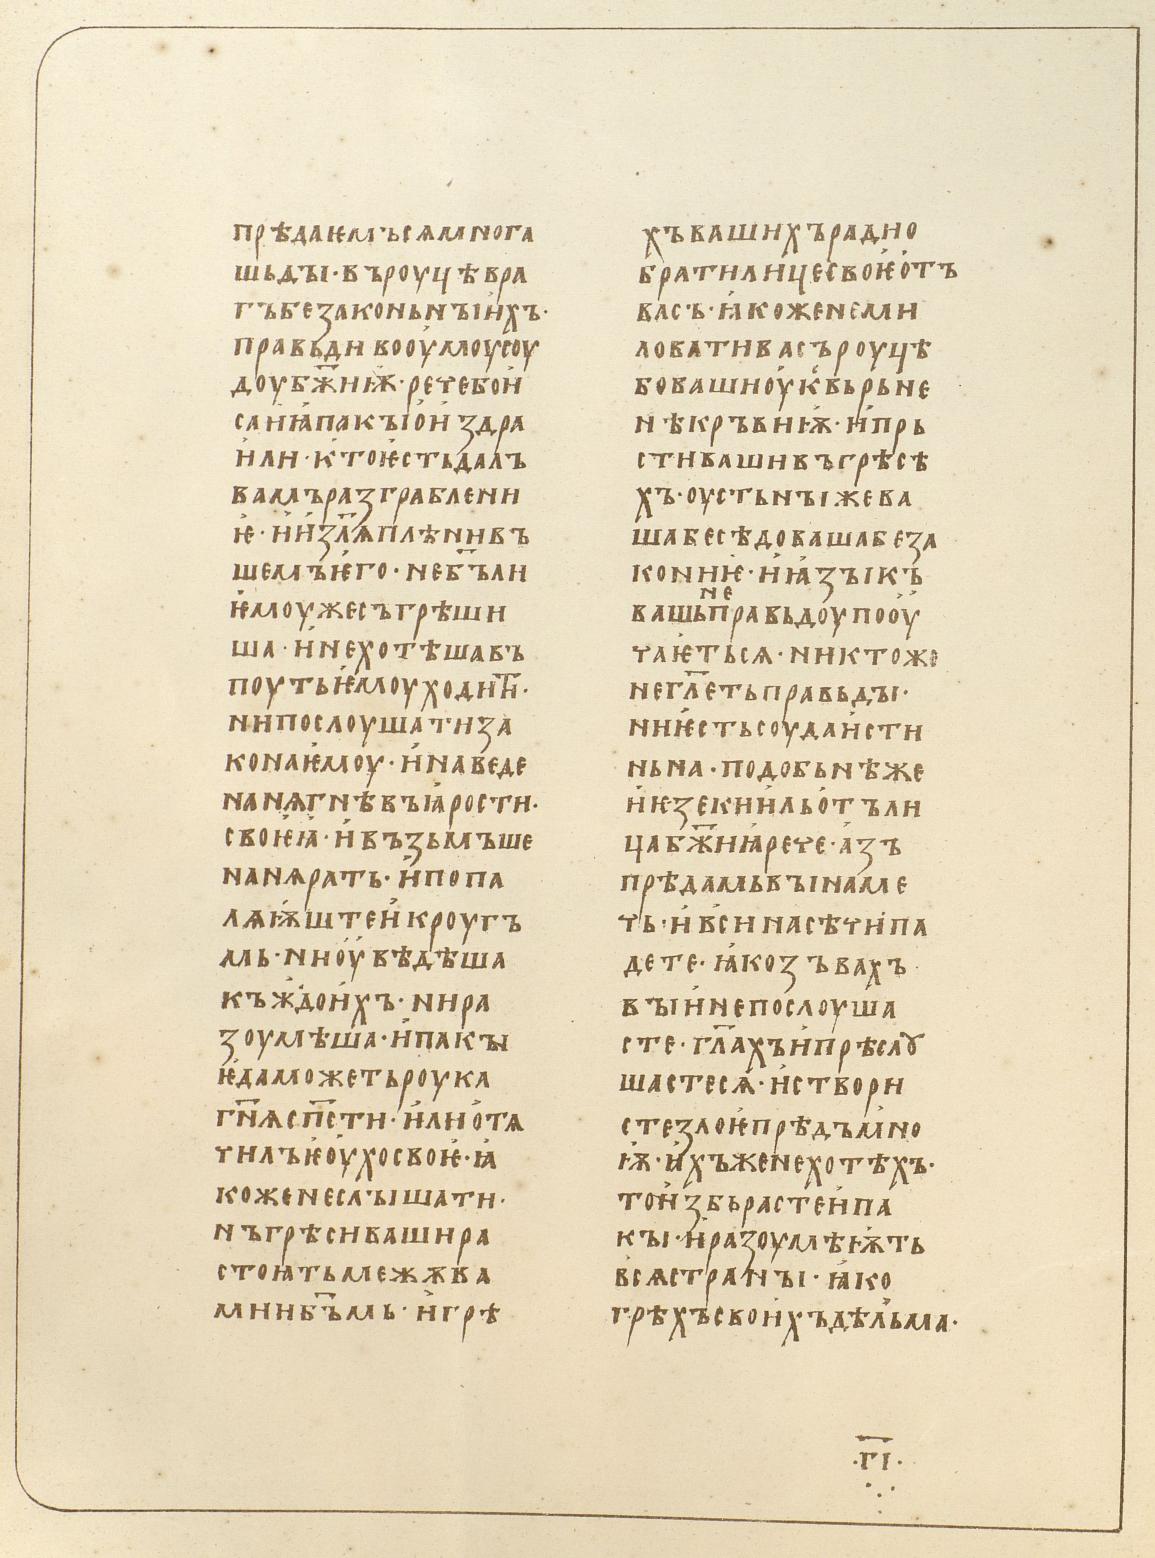 прѣдаѥмъсѧмнога
шьдꙑ·въроуцѣвра
гъбезаконьнꙑихъ·
правьди воомоусоу
доубж҃ниꙗ·речебои
саниꙗпакꙑоиздра
или·ктоѥстьдалъ
вамъразграблени
ѥ·иизл҃ѧплѣнивъ
шемъѥго·неб҃ъли
ѥмоужесъгрѣши
ша·инехотѣшавъ
поутьѥмоуходит҃и·
нипослоушатиза
конаѥмоу·инаведе
нанѧгнѣвъꙗрости·
своѥꙗ·ивъзьмъше
нанѧрать·ипопа
лѧѭштеикроугъ
мь·ниоувѣдѣша
къждоихъ·нира
зоумѣша·ипакꙑ
ѥдаможетьроука
гн҃ѧсп҃сти·илиотѧ
чилъѥоухосвоѥ·ꙗ
коженеслꙑшати·
нъгрѣсивашира
стоꙗтьмежѫва
миибъ҃мь·игрѣ
хъвашихърадно
братилицесвоѥотъ
васъ·ꙗкоженеми
ловативасъроуцѣ
бовашиоуквьрьне
нѣкръвиѭ·ипрь
стивашивъгрѣсѣ
хъ·оустьнꙑжева
шабесѣдовашабеза
кониѥ·иꙗзꙑкъ
вашьнеправьдоупооу
чаѥтьсѧ·никтоже
негл҃етьправьдꙑ·
ниѥстьсоудаисти
ньна·подобьнѣже
иѥзекиильотъли
цабж҃ниꙗрече·азъ
прѣдамьвꙑнаме
чь·ивсинасѣчипа
дете·ꙗкозъвахъ
вꙑинепослоуша
сте·гл҃ахъипрѣслꙋ
шастесѧ·иствори
стезлоѥпрѣдъмно
ѭ·ихъженехотѣхъ·
тоизбьрастеипа
кꙑ·иразоумѣѭть
всѧстранꙑ·ꙗко
грѣхъсвоихъдѣльма·
·г҃і·